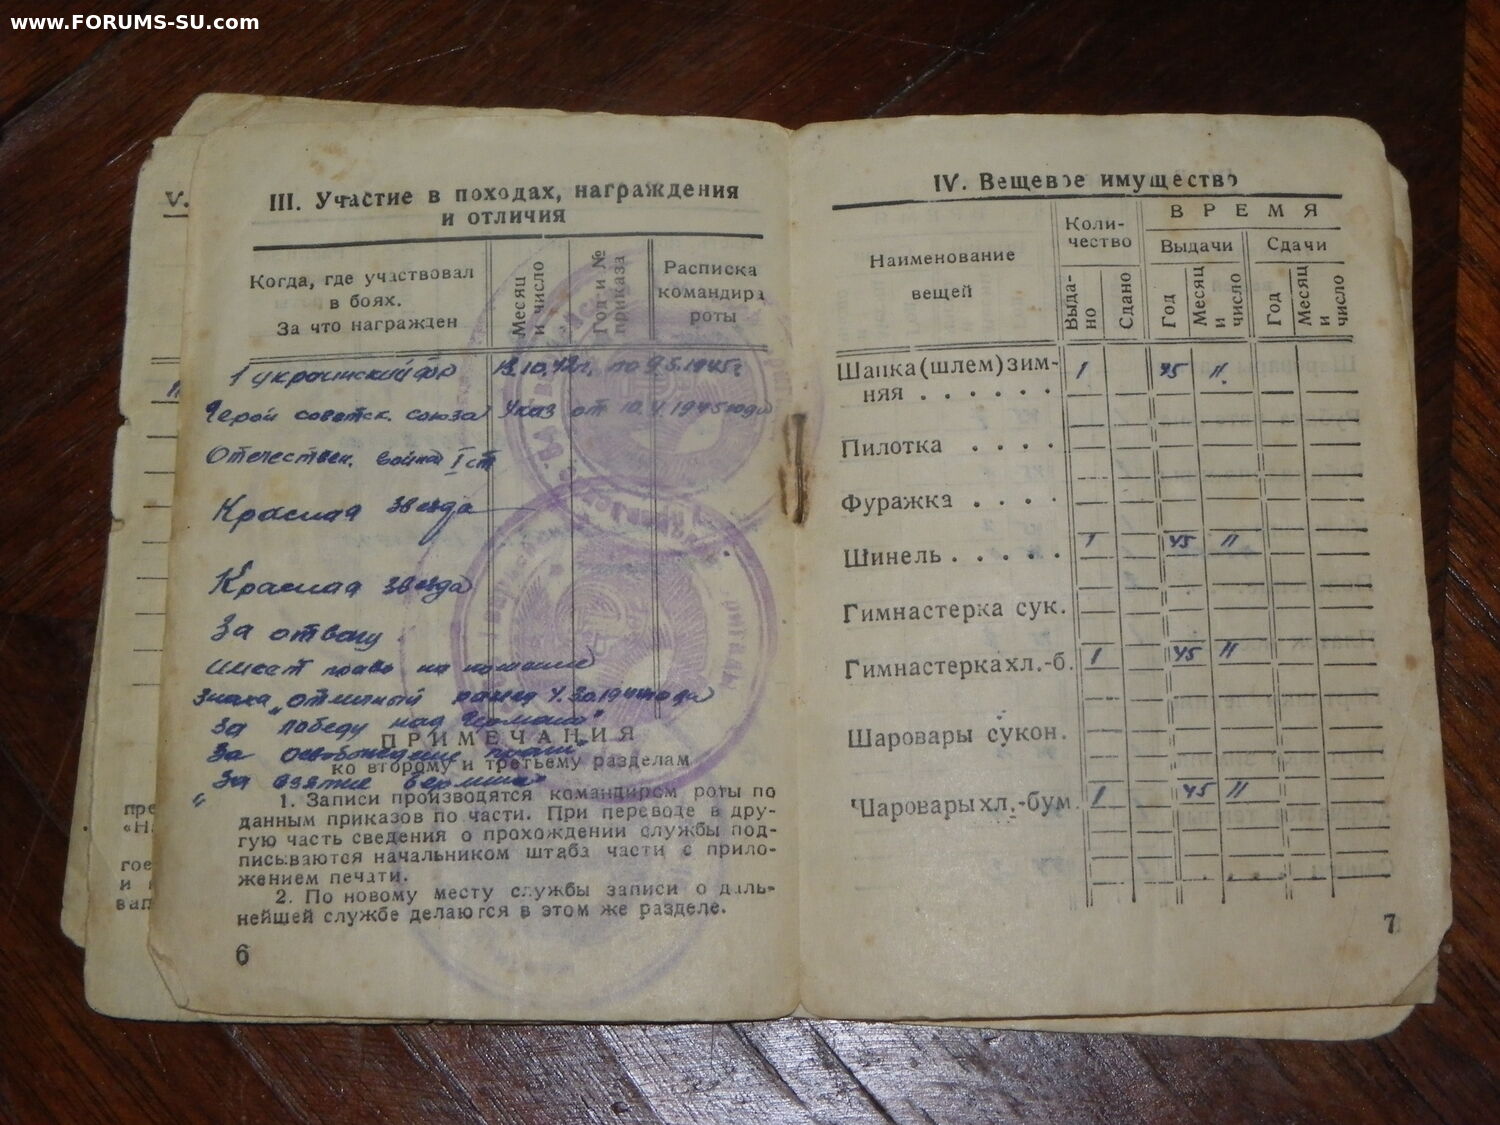 www.FORUMS-SU.com
V.
III. Участие в походах, награждения
и отличия
Когда, где участвовал
в боях.
За что награжден
Месяц
и число
Год и №
приказа
Расписка
командира
роты
1 украинский фр 13.10.42г. по 9.5.1945г
Герой советск. союза Указ от 10.4.1945 года
Отечествен. война I ст
Красная звезда
Красная звезда
За отвагу
имеет право на ношение
Знака „отличный 4.30.1944 года
За победу над
ПРИМЕЧАНИЯ
За освобождение праги"
ко второму и третьему разделам
„За взятие берлина"
1. Записи производятся командиром роты по
данным приказов по части. При переводе в дру-
гую часть сведения о прохождении службы под-
писываются начальником штаба части с прило-
жением печати.
2. По новому месту службы записи о даль-
нейшей службе делаются в этом же разделе.
6
IV. Вещевое имущество
Наименование
вещей
Коли-
чество
ВРЕМЯ
Выдачи
Сдачи
Выда-
но
Сдано
Год
Месяц
и
число
Год
Месяц
и
число
Шапка (шлем) зим-
няя . . . . . . 1 45 11
Пилотка . . . .
Фуражка . . . .
Шинель . . . . . 1 45 11
Гимнастерка сук.
Гимнастерка хл.-б. 1 45 11
Шаровары сукон.
Шаровары хл.-бум. 1 45 11
7